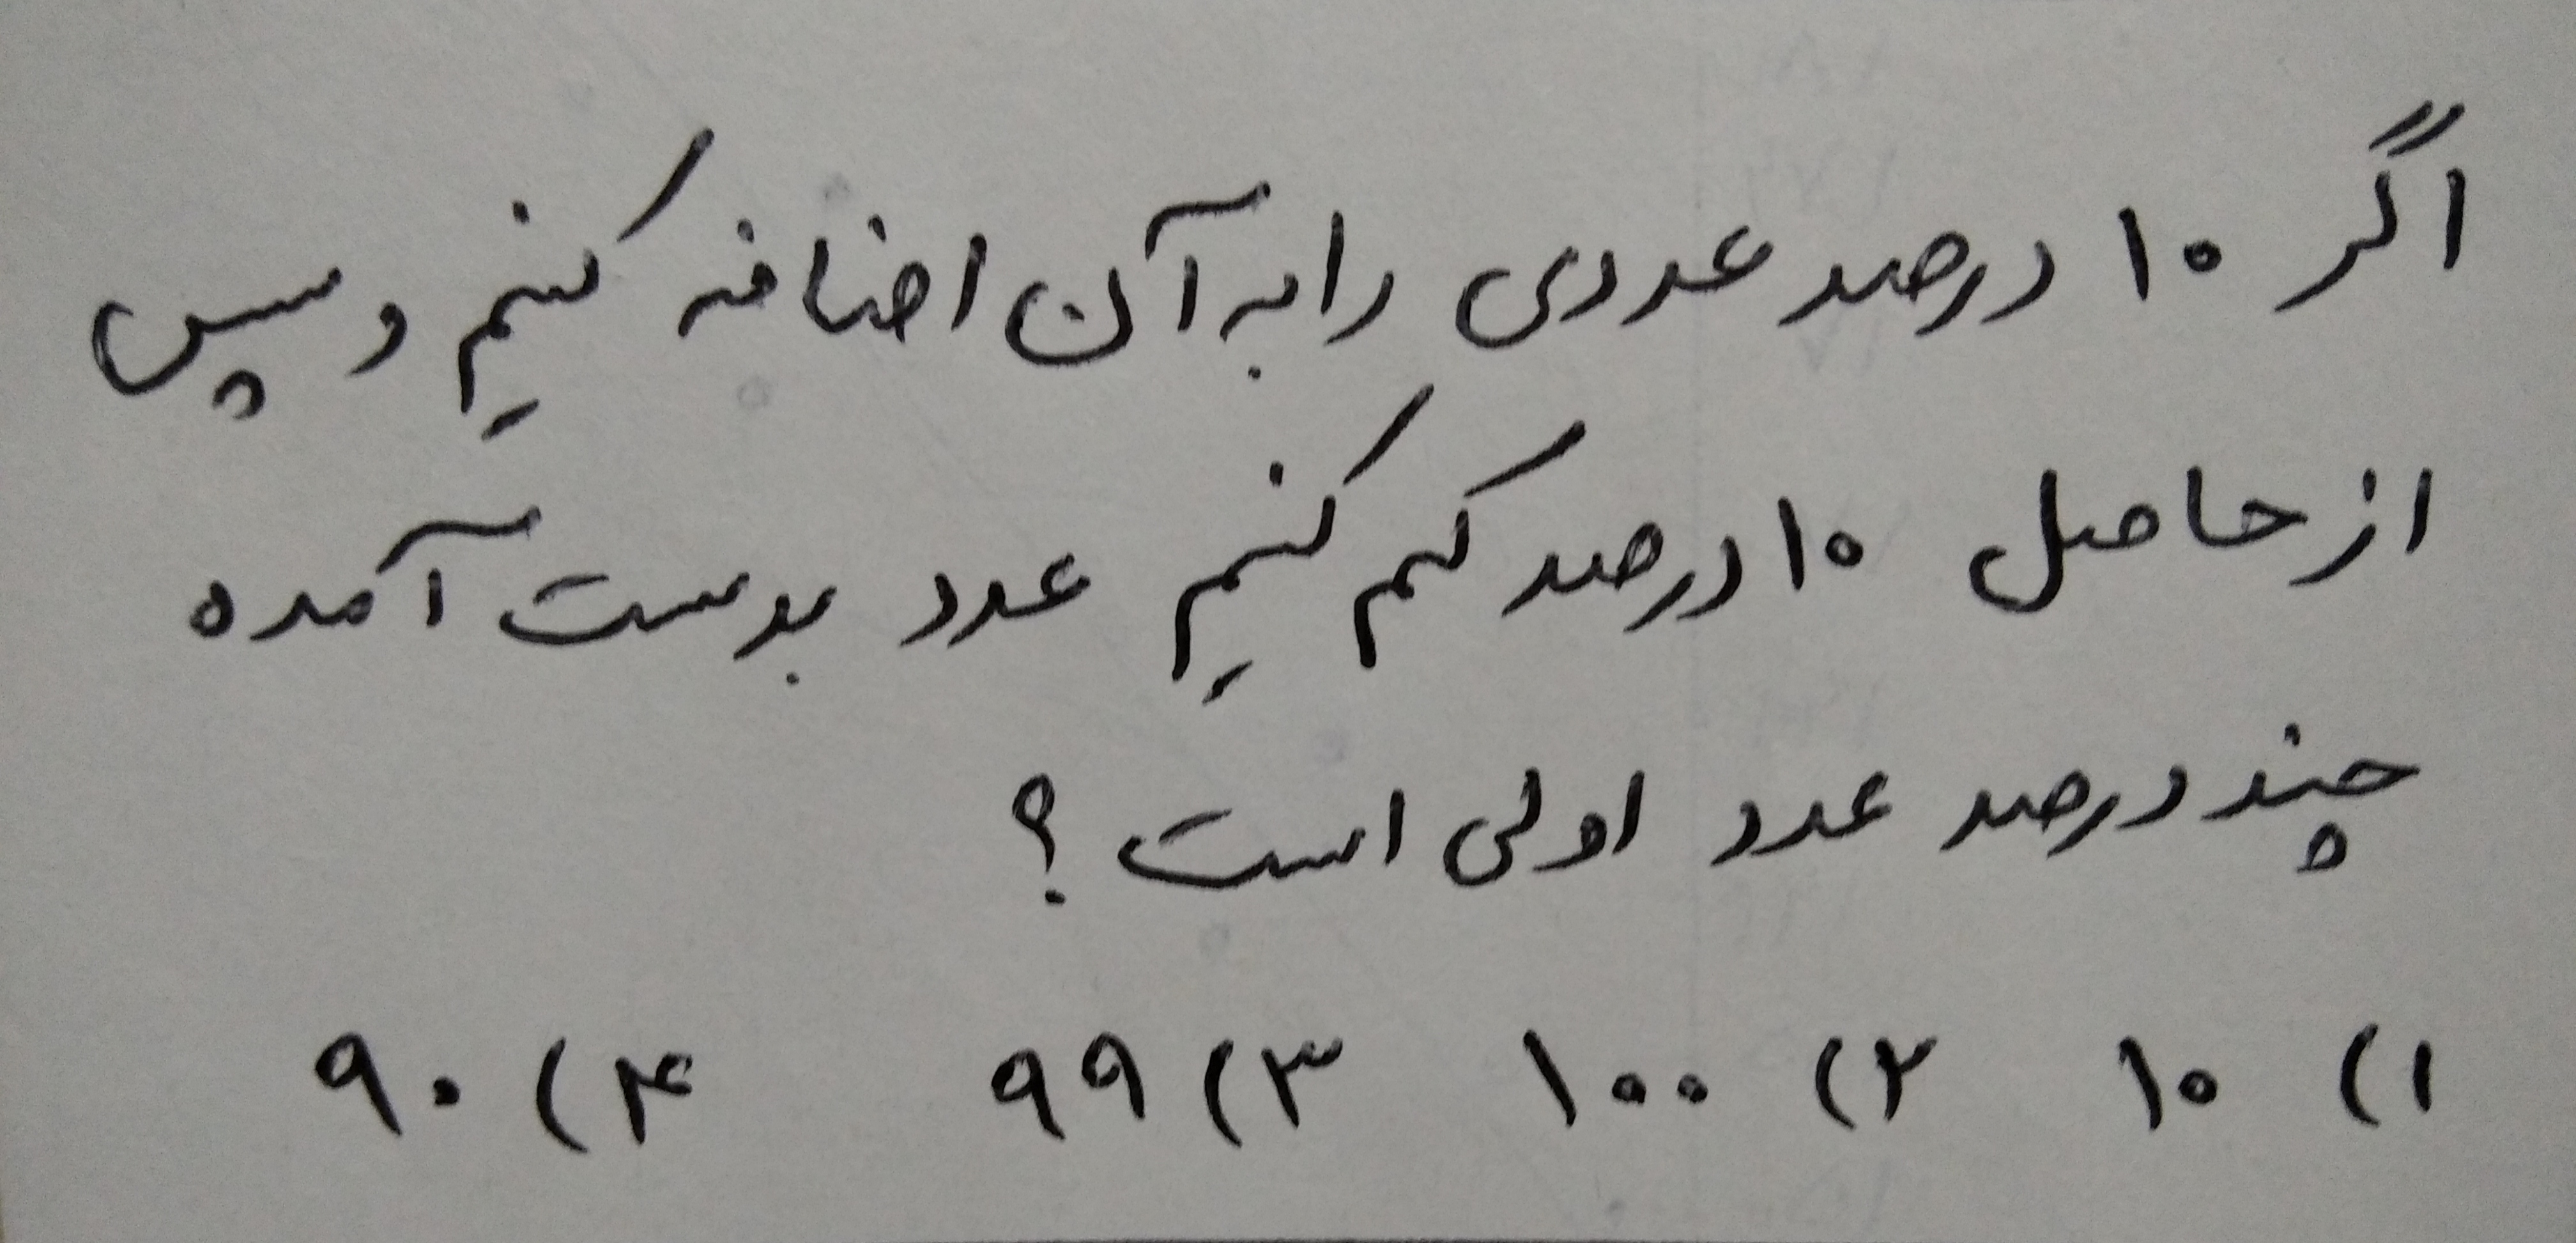 اگر ۱۰ درصد عددی را به آن اضافه کنیم و سپس
از حاصل ۱۰ درصد کم کنیم عدد بدست آمده
چند درصد عدد اولی است ؟
۱) ۱۰ ۲) ۱۰۰ ۳) ۹۹ ۴) ۹۰